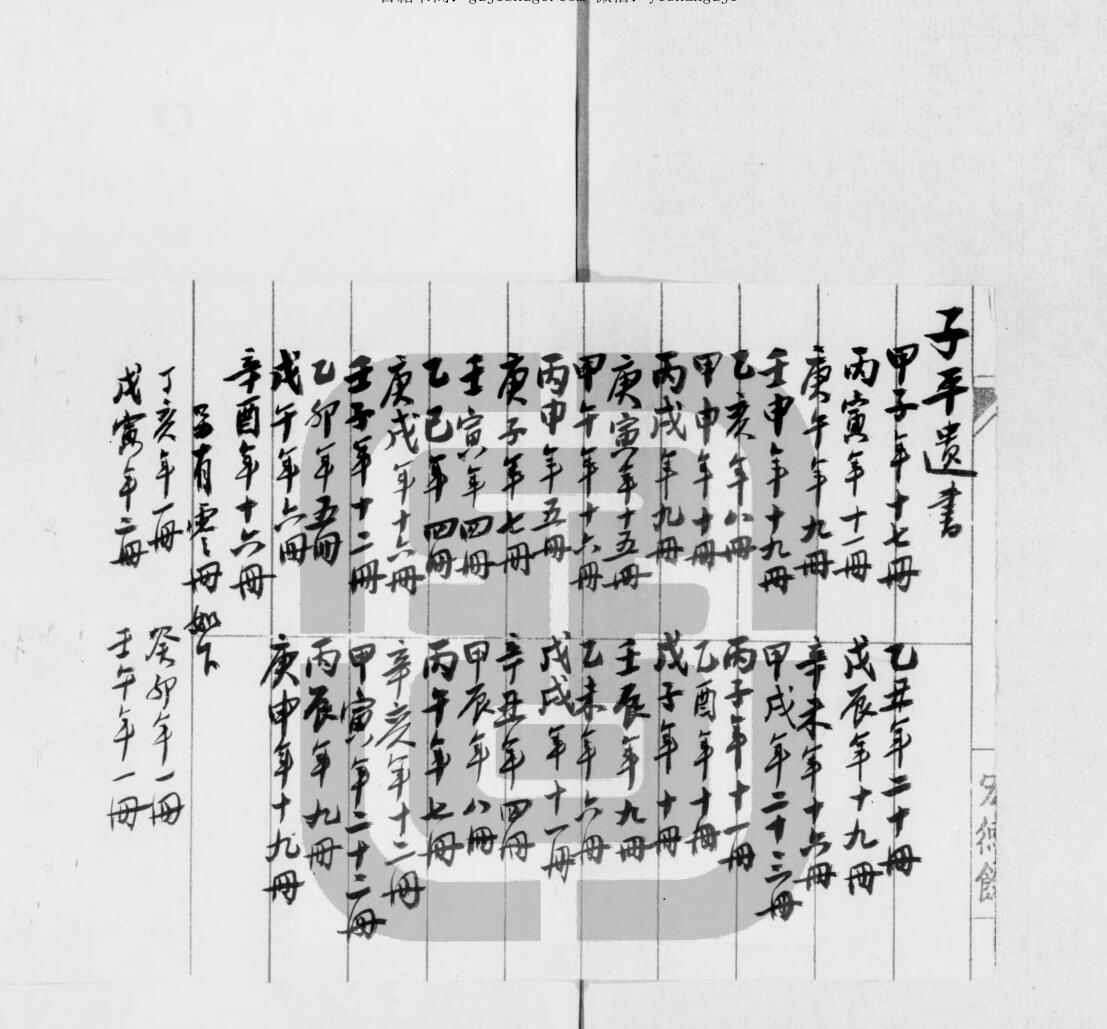 子平遺書
甲子年十七冊
乙丑年二十冊
丙寅年十一冊
戊辰年十九冊
庚午年九冊
辛未年十六冊
壬申年十九冊
甲戌年二十三冊
乙亥年八冊
丙子年十一冊
甲申年十冊
乙酉年十冊
丙戌年九冊
戊子年十冊
庚寅年十五冊
壬辰年九冊
甲午年十六冊
乙未年六冊
丙申年五冊
戊戌年十一冊
庚子年七冊
辛丑年四冊
壬寅年四冊
甲辰年八冊
乙巳年四冊
丙午年七冊
庚戌年十六冊
辛亥年十二冊
壬子年十二冊
甲寅年二十二冊
乙卯年五冊
丙辰年九冊
戊午年六冊
庚申年十九冊
辛酉年十六冊
另有零冊如下
丁亥年一冊
癸卯年一冊
戊寅年二冊
壬午年一冊